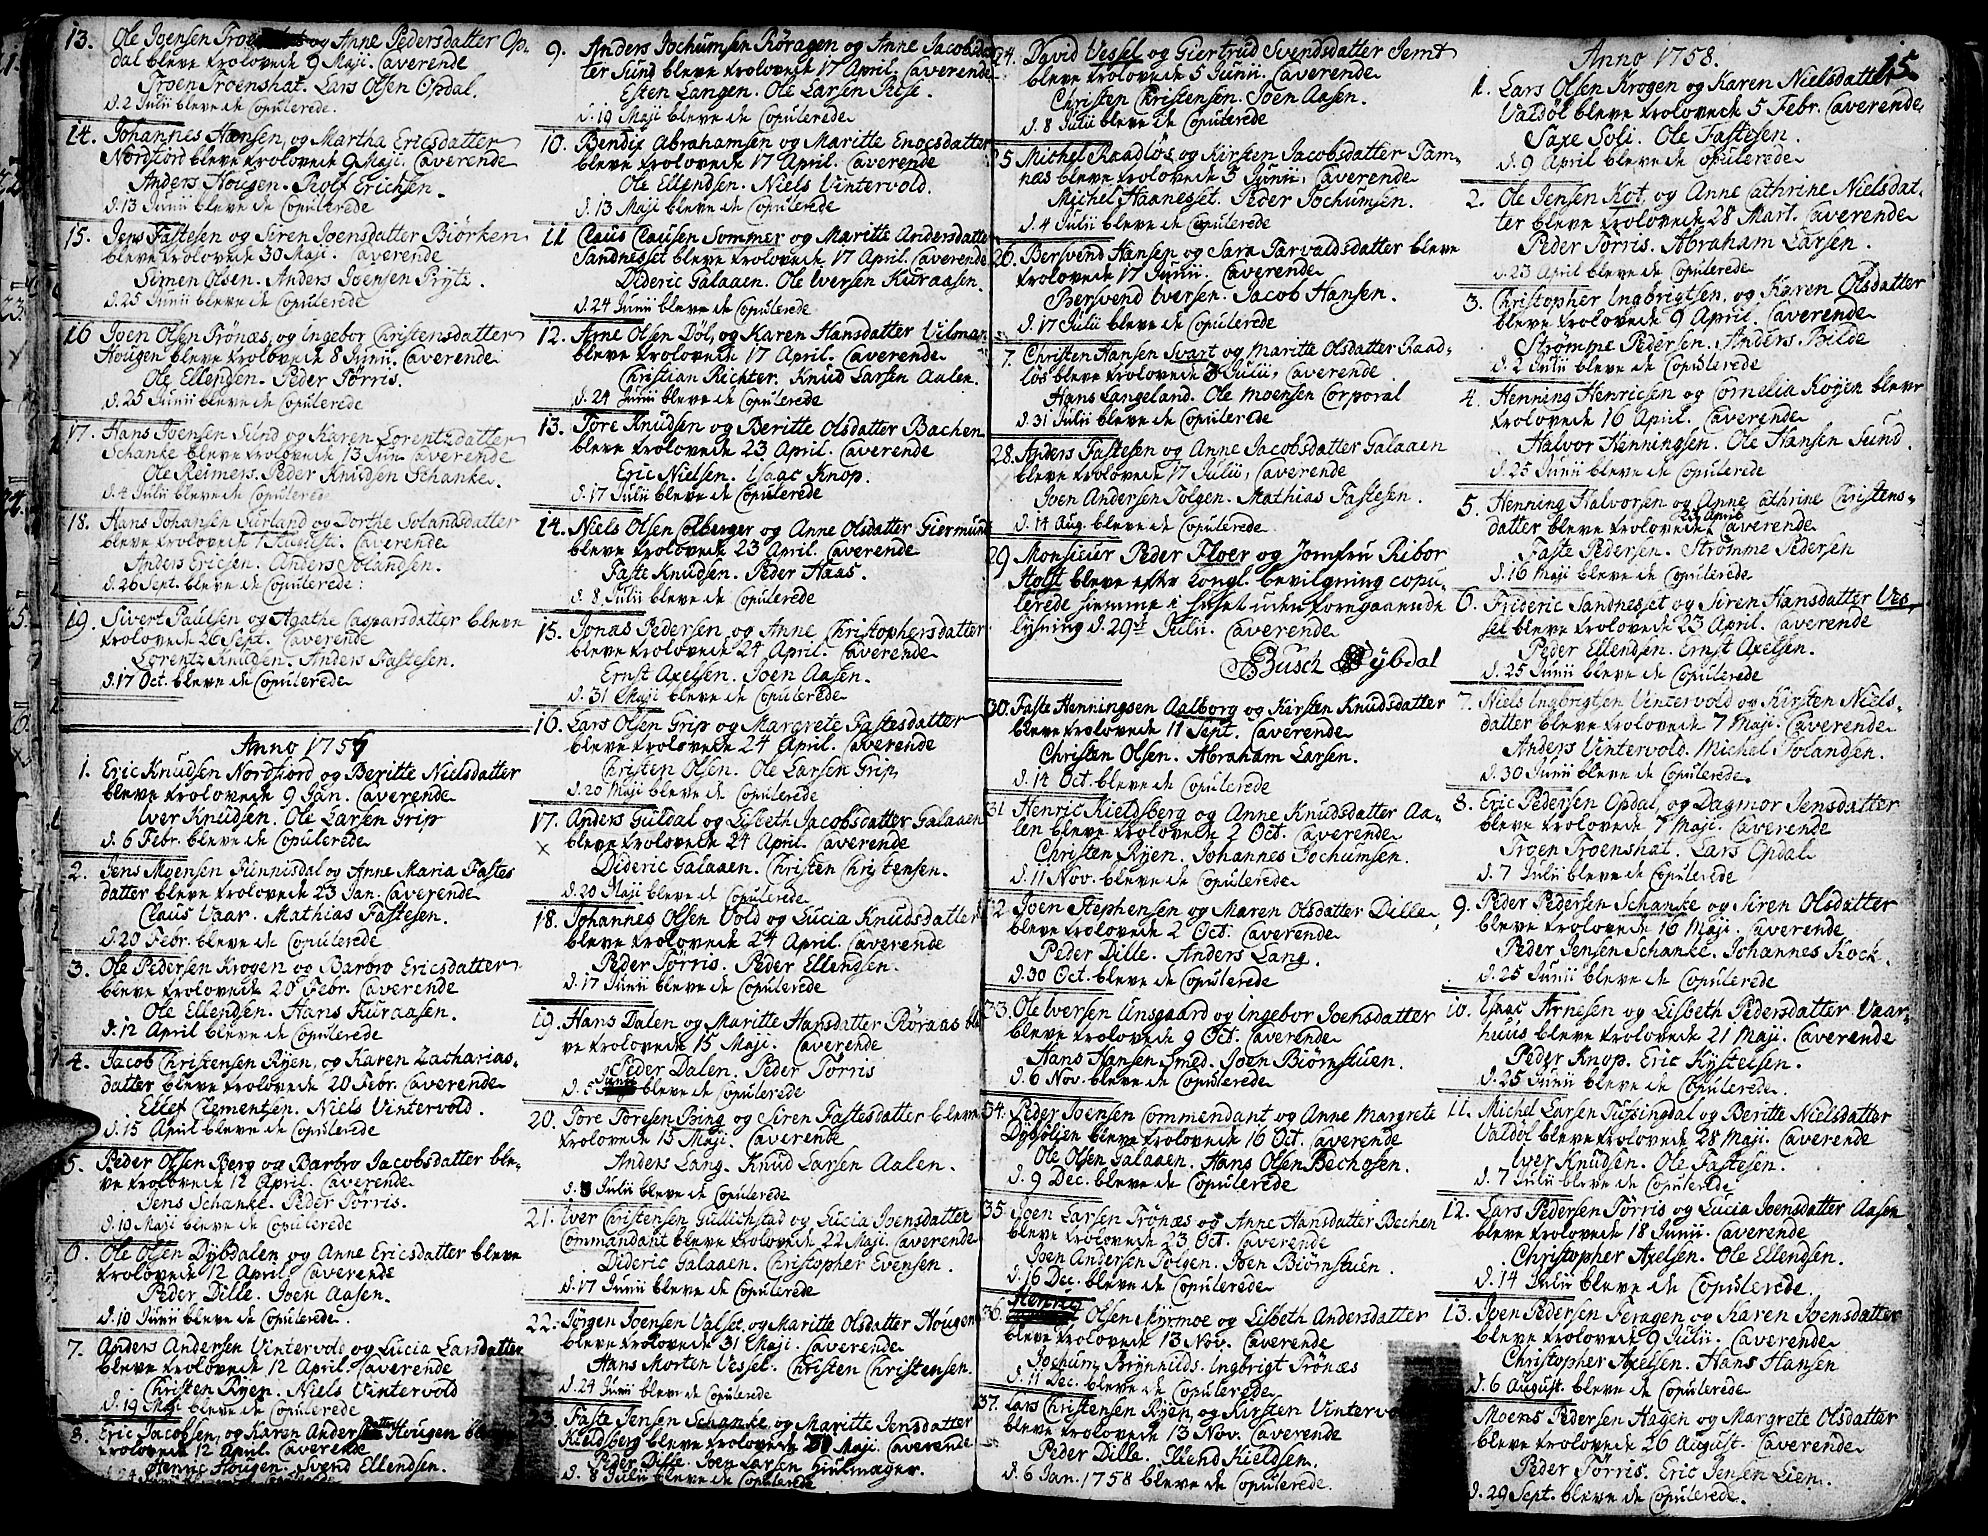 13. Ole Joensen Troe og Anne Pedersdatter Op-
dal bleve trolovede 9 Maji. Caverende
Troen Troenshat. Lars Olsen Opdal.
d. 2 Julii bleve de Copulerede.
14. Johannes Hansen, og Martha Ericsdatter
Nordfiord bleve trolovede 9 Maji. Caverende
Anders Hougen. Rolf Erichsen.
d. 13 Junii bleve de Copulerede
15. Jens Fastesen og Siren Joensdatter Biörken
bleve trolovede 30 Maji. Caverende
Simen Olsen. Anders Joensen Prytz.
d. 25 Junii bleve de Copulerede
16 Joen Olsen Trönæs, og Ingebor Christensdatter
Hougen bleve trolovede 8 Junii. Caverende
Ole Ellendsen. Peder Törris.
d. 25 Junii bleve de Copulerede
17. Hans Joensen Sund og Karen Lorentzdatter
Schanke bleve trolovede 13 Jun. Caverende
Ole Reimers. Peder Knudsen Schanke.
d. 4 Julii bleve de Copulerede
18. Hans Johansen Surland og Dorthe Solandsdatter
bleve trolovede 1 Augusti. Caverende
Anders Ericsen. Anders Solandsen.
d. 26 Sept. bleve de Copulerede:
19. Sivert Paulsen og Agathe Caspersdatter bleve
trolovede 26 Sept. Caverende
Lorentz Knudsen. Anders Fastesen.
d. 17 Oct. bleve de Copulerede
Anno 1757
1. Eric Knudsen Nordfiord og Beritte Nielsdatter
bleve trolovede 9 Jan. Caverende
Iver Knudsen. Ole Larsen Grip
d. 6 Febr. bleve de Copulerede
2. Jens Moensen Finnisdal og Anne Maria Fastes
datter bleve trolovede 23 Jan. Caverende
Claus Vaar. Mathias Fastesen.
d. 20 Febr. bleve de Copulerede
3. Ole Pedersen Krogen og Barbro Ericsdatter
bleve trolovede 20 Febr. Caverende
Ole Ellendsen. Hans Kuraasen.
d. 12 April bleve de Copulerede
4. Jacob Christensen Ryen, og Karen Zacharias-
datter bleve trolovede 20 Febr. Caverende
Ellef Clementsen. Niels Vintervold.
d. 15 April bleve de Copulerede
5. Peder Olsen Berg og Barbro Jacobsdatter ble-
ve trolovede 12 April. Caverende
Jens Schanke. Peder Törris.
d. 19 Maji bleve de Copulerede
6. Ole Olsen Dybdalen og Anne Ericsdatter bleve
trolovede 12 April. Caverende
Peder Dille. Joen Aasen.
d. 10 Junii bleve de Copulerede.
7. Anders Andersen Vintervold og Lucia Larsdatter
bleve trolovede 12 April. Caverende
Christen Ryen. Niels Vintervold
d. 19 Maji bleve de Copulerede
8. Eric Jacobsen, og Karen Andersdatter Hougen
trolovede 12 April. Caverende
Henric Hougen. Svend Ellendsen.
9. Anders Jochumsen Röragen og Anne Jacobsdat
ter Sund bleve trolovede 17 April. Caverende
Esten Langen. Ole Larsen Rese.
d. 19 Maji bleve de Copulerede
10. Bendix Abrahamsen og Maritte Enocsdatter
bleve trolovede 17 April. Caverende
Ole Ellendsen. Niels Vintervold.
d. 13 Maji bleve de Copulerede
11 Claus Clausen Sommer og Maritte Andersdatter
Sandnesset bleve trolovede 17 April. Caverende
Dideric Galaaen. Ole Iversen Kuraasen.
d. 24 Junii bleve de Copulerede
12. Arne Olsen Döl, og Karen Hansdatter Vilmar
bleve trolovede 17 April. Caverende
Christian Richter. Knud Larsen Aalen.
d. 24 Junii bleve de Copulerede
13. Tore Knudsen og Beritte Olsdatter Bachen
bleve trolovede 23 April. Caverende
Eric Nielsen. Isaac Knop.
d. 17 Julii bleve de Copulerede
14. Niels Olsen Colberger og Anne Olsdatter Giermund
bleve trolovede 23 April. Caverende
Faste Knudsen. Peder Haas.
d. 8 Julii bleve de Copulerede
15. Jonas Pedersen og Anne Christophersdatter
bleve trolovede 24 April. Caverende
Ernst Axelsen. Joen Aasen.
d. 31 Maji bleve de Copulerede
16. Lars Olsen Grip og Margrete Fastesdatter
bleve trolovede 24 April. Caverende
Christen Olsen. Ole Larsen Grip.
d. 20 Maji bleve de Copulerede
17. Anders Guldal og Lisbeth Jacobsdatter Galaaen
bleve trolovede 24 April. Caverende
Dideric Galaaen. Christen Christensen.
d. 20 Maji bleve de Copulerede
18. Johannes Olsen Vold og Lucia Knudsdatter
bleve trolovede 24 April. Caverende
Peder Törris. Peder Ellendsen.
d. 17 Junii bleve de Copulerede
19. Hans Dalen og Maritte Hansdatter Röraas ble
ve trolovede 15 Maji. Caverende
Peder Dalen. Peder Törris
d. 5 Junii bleve de Copulerede
20. Tore Toresen Bing og Siren Fastesdatter bleve
trolovede 15 Maji. Caverende
Anders Lang. Knud Larsen Aalen.
d. 8 Julii bleve de Copulerede
21. Iver Christensen Gullichstad og Lucia Joensdatter
Commandant bleve trolovede 22 Maji. Caverende
Dideric Galaaen. Christopher Evensen.
d. 17 Junii bleve de Copulerede
22. Jörgen Joensen Valset, og Maritte Olsdatter Hougen
bleve trolovede 31 Maji. Caverende
Hans Morten Vessel. Christen Christensen.
d. 24 Junii bleve de Copulerede
23. Faste Jensen Schanke, og Maritte Jensdatter
Kieldsberg bleve trolovede Maji. Caverende
Peder Dille. Joen Larsen Hiulmager.
d. 8 Julii bleve de Copulerede
24. David Vessel og Giertrud Svendsdatter Jemt
bleve trolovede 5 Junii. Caverende
Christen Christensen. Joen Aasen.
d. 8 Julii bleve de Copulerede
25 Michel Raadlös og Kirsten Jacobsdatter Tam-
næs bleve trolovede 5 Junii, Caverende
Michel Haanesset. Peder Jochumsen.
d. 4 Julii bleve de Copulerede
26. Bersvend Hansen og Sara Tarvaldsdatter bleve
trolovede 17 Junii. Caverende
Bersvend Iversen. Jacob Hansen.
d. 17 Julii bleve de Copulerede
7. Christen Hansen Svart og Maritte Olsdatter Raad-
lös bleve trolovede 3 Julii, Caverende
Hans Langeland. Ole Moensen Corporal
d. 31 Julii bleve de Copulerede
28. Anders Fastesen og Anne Jacobsdatter Galaaen
bleve trolovede 17 Julii, Caverende
Joen Andersen Tolgen. Mathias Fastesen.
d. 14 Aug. bleve de Copulerede
29 Monsieur Peder Floer og Jomfru Ribor
Holst bleve efter Kongl. bevilgning copu-
lerede hiemme i huset uden foregaaende
lysning d. 29de Julii. Caverende
Busch Dybdal
30. Faste Henningsen Aalborg og Kirsten Knudsdatter
bleve trolovede 11 Sept. Caverende
Christen Olsen. Abraham Larsen.
d. 14 Oct. bleve de Copulerede
31 Henric Kieldsberg og Anne Knudsdatter Aa-
len bleve trolovede 2 Oct. Caverende
Christen Ryen. Johannes Jochumsen.
d. 11 Nov. bleve de Copulerede
32. Joen Stephensen og Maren Olsdatter Dille
bleve trolovede 2 Oct. Caverende
Peder Dille. Anders Lang.
d. 30 Oct. bleve de Copulerede
33. Ole Iversen Ansgaard og Ingebor Joensdatter
bleve trolovede 9 Oct. Caverende
Hans Hansen Smed. Joen Biörnstuen.
d. 6 Nov. bleve de Copulerede
34. Peder Joensen Commendant og Anne Margrete
Dybsölien bleve trolovede 16 Oct. Caverende
Ole Olsen Galaaen. Hans Olsen Bechosen.
d. 9 Dec. bleve de Copulerede
35. Joen Larsen Trönæs og Anne Hansdatter Bechen
bleve trolovede 23 Oct. Caverende
Joen Andersen Tolgen. Joen Biörnstuen.
d. 16 Dec. bleve de Copulerede
36. Henning Olsen Myrmoe og Lisbeth Andersdatter
bleve trolovede 13 Nov. Caverende
Jochum Brynhilds. Ingbrigt Trönæs
d. 11 Dec. bleve de Copulerede
37. Lars Christensen Ryen, og Kirsten Vintervo
bleve trolovede 13 Nov. Caverende
Peder Dille. Ellend Kieldsen.
d. 6 Jan. 1758 bleve de Copulerede.
15
Anno 1758.
1. Lars Olsen Krogen og Karen Nielsdatter
Valdöl bleve trolovede 5 Febr. Caverende
Saxe Soli. Ole Fastesen.
d. 9 April bleve de Copulerede
2. Ole Jensen Kot, og Anne Cathrine Nielsdat-
ter bleve trolovede 28 Mart. Caverende
Peder Törris. Abraham Larsen.
d. 23 April bleve de Copulerede
3. Christopher Ingbrigtsen, og Karen Olsdatter
bleve trolovede 9 April. Caverende
Strömme Pedersen. Anders Bilde
d. 2 Julii bleve de Copulerede
4. Henning Henricsen og Cornelia Koyen bleve
trolovede 16 April. Caverende
Halvor Henningsen. Ole Hansen Sund.
d. 25 Junii bleve de Copulerede
5. Henning Halvorsen og Anne Cathrine Christens-
datter bleve trolovede 23 April Caverende
Faste Pedersen. Strömme Pedersen
d. 16 Maji bleve de Copulerede
6. Frideric Sandnesset og Siren Hansdatter Ves-
sel bleve trolovede 23 April. Caverende
Peder Ellendsen. Ernst Axelsen.
d. 25 Junii bleve de Copulerede
7. Niels Ingbrigtsen Vintervold og Kirsten Niels-
datter bleve trolovede 7 Maji. Caverende
Anders Vintervold. Michel Solandsen.
d. 30 Junii bleve de Copulerede.
8. Eric Pedersen Opdal, og Dagmor Jensdatter
bleve trolovede 7 Maji. Caverende
Troen Troenshat. Lars Opdal
d. 7 Julii bleve de Copulerede
9. Peder Pedersen Schanke og Siren Olsdatter
bleve trolovede 16 Maji. Caverende
Peder Jensen Schanke. Johannes Kock.
d. 25 Junii bleve de Copulerede
10. Isaac Arnesen og Lisbeth Pedersdatter Vaar-
huus bleve trolovede 21 Maji. Caverende
Peder Knop. Eric Kystelsen.
d. 25 Junii bleve de Copulerede
11. Michel Larsen Tufsingdal og Beritte Nielsdatter
Valdöl bleve trolovede 28 Maji. Caverende
Iver Knudsen. Ole Fastesen.
d. 7 Julii bleve de Copulerede
12. Lars Pedersen Törris og Lucia Joensdatter Aasen
bleve trolovede 18 Junii. Caverende
Christopher Axelsen. Ole Ellendsen.
d. 14 Julii bleve de Copulerede.
13. Joen Pedersen Feragen og Karen Joensdatter
bleve trolovede 9 Julii. Caverende
Christopher Axelsen. Hans Hansen
d. 6 August. bleve de Copulerede
Moens Pedersen Hagen og Margrete Olsdatter
bleve trolovede 26 August. Caverende
Peder Törris. Eric Jensen Lien.
d. 29 Sept. bleve de Copulerede.